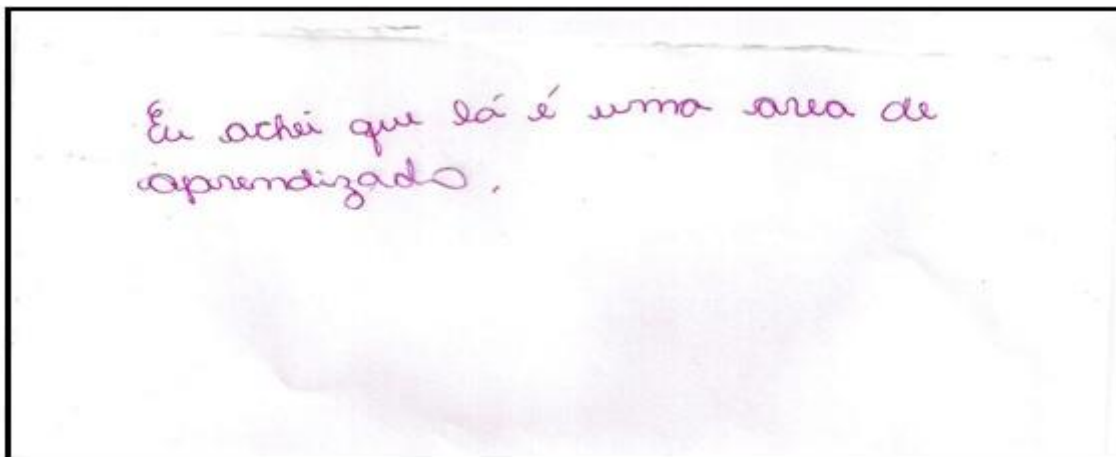 Eu achei que lá é uma area de
aprendizado.